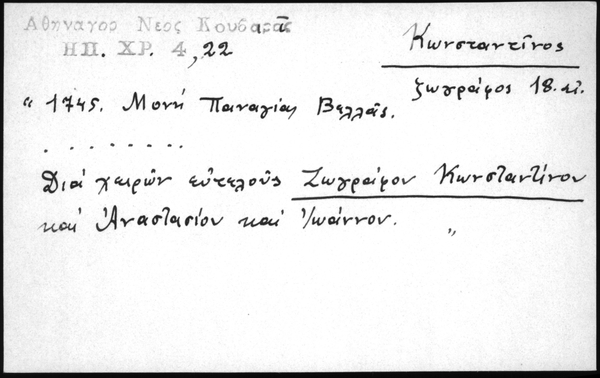 Αθηναγορ Νεος Κουβαρᾶς
ΗΠ. ΧΡ. 4, 22
Κωνσταντῖνος
ζωγράφος 18. αἰ.
“ 1745. Μονή Παναγίας Βελλᾶς.
. . . . . . . .
Διά χειρῶν εὐτελοῦς Ζωγράφου Κωνσταντίνου
καί Ἀναστασίου καί Ἰωάννου. „